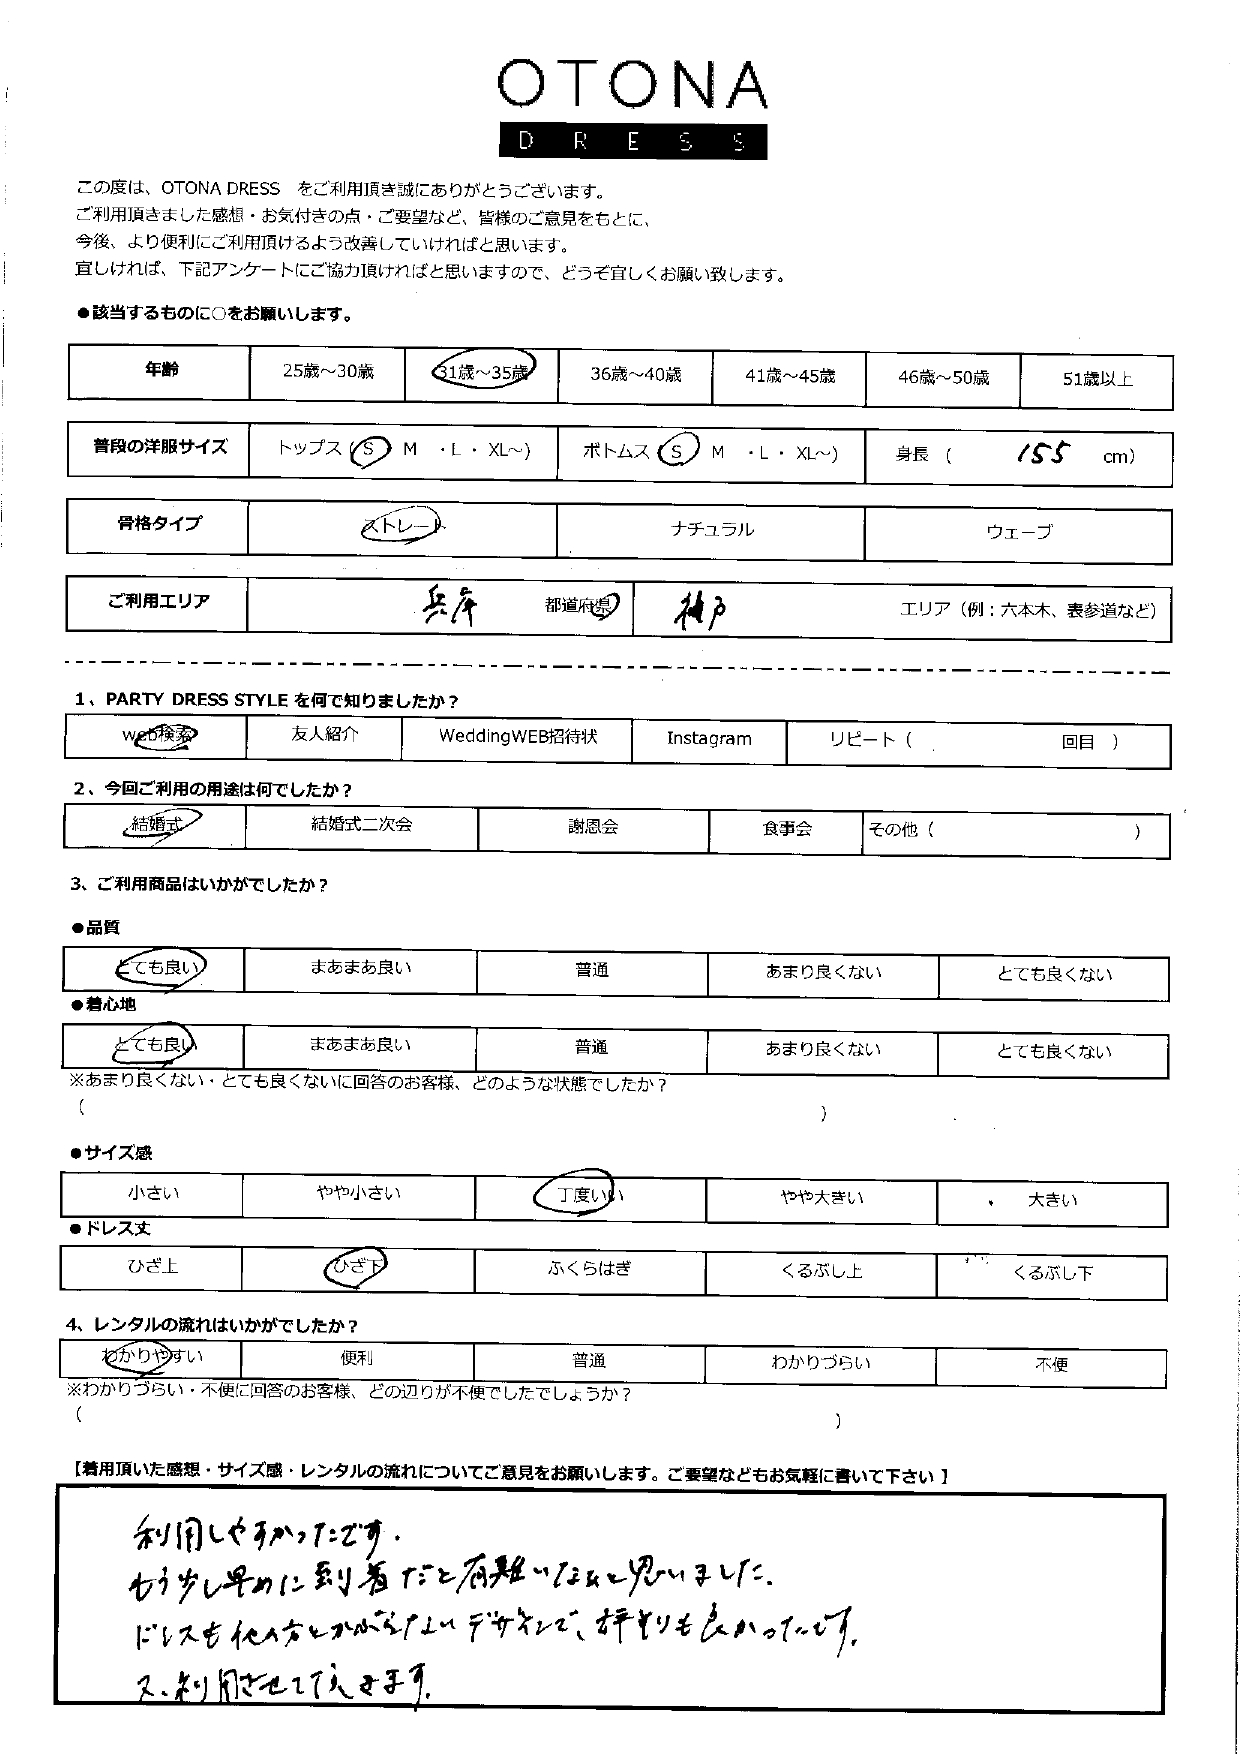 OTONA
DRESS
この度は、OTONA DRESS をご利用頂き誠にありがとうございます。
ご利用頂きました感想・お気付きの点・ご要望など、皆様のご意見をもとに、
今後、より便利にご利用頂けるよう改善していければと思います。
宜しければ、下記アンケートにご協力頂ければと思いますので、どうぞ宜しくお願い致します。
●該当するものに○をお願いします。
年齢 25歳～30歳 31歳～35歳 36歳～40歳 41歳～45歳 46歳～50歳 51歳以上
普段の洋服サイズ トップス (S M ・L・ XL～) ボトムス (S M ・L・ XL～) 身長 ( 155 cm)
骨格タイプ ストレート ナチュラル ウェーブ
ご利用エリア 兵庫 都道府県 神戸 エリア（例：六本木、表参道など）
1、PARTY DRESS STYLE を何で知りましたか？
web検索 友人紹介 WeddingWEB招待状 Instagram リピート（ 回目 ）
2、今回ご利用の用途は何でしたか？
結婚式 結婚式二次会 謝恩会 食事会 その他（ ）
3、ご利用商品はいかがでしたか？
●品質
とても良い まあまあ良い 普通 あまり良くない とても良くない
●着心地
とても良い まあまあ良い 普通 あまり良くない とても良くない
※あまり良くない・とても良くないに回答のお客様、どのような状態でしたか？
( )
●サイズ感
小さい やや小さい 丁度いい やや大きい 大きい
●ドレス丈
ひざ上 ひざ下 ふくらはぎ くるぶし上 くるぶし下
4、レンタルの流れはいかがでしたか？
わかりやすい 便利 普通 わかりづらい 不便
※わかりづらい・不便に回答のお客様、どの辺りが不便でしたでしょうか？
( )
【着用頂いた感想・サイズ感・レンタルの流れについてご意見をお願いします。ご要望などもお気軽に書いて下さい】
利用しやすかったです.
もう少し早めに到着だと有難いなぁと思いました.
ドレスも他の方とかぶらないデザインで、評判りも良かったです.
又、利用させて頂きます.